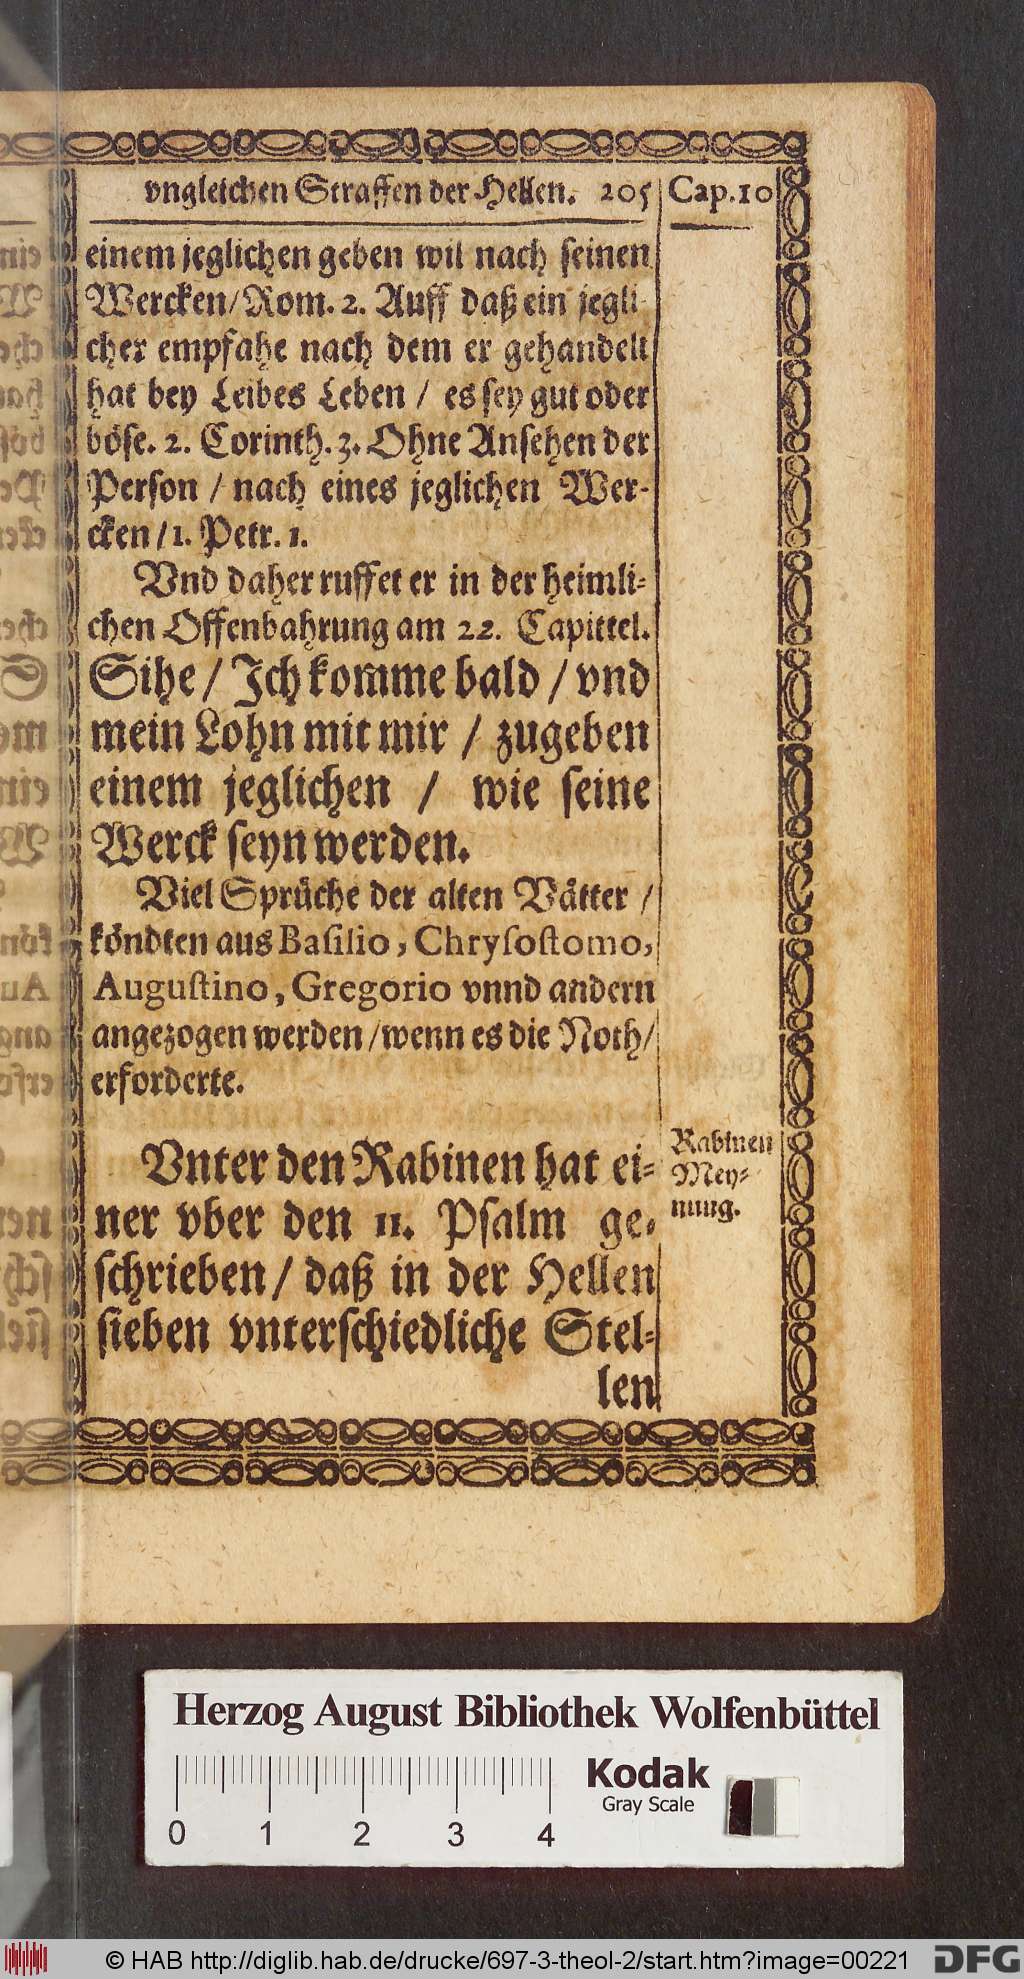 vngleichen Straffen der Hellen. 205 Cap.10
einem jeglichen geben wil nach seinen
Wercken/ Rom. 2. Auff daß ein jegli-
cher empfahe nach dem er gehandelt
hat bey Leibes Leben / es sey gut oder
böse. 2. Corinth. 3. Ohne Ansehen der
Person / nach eines jeglichen Wer-
cken / 1. Petr. 1.
Vnd daher ruffet er in der heimli-
chen Offenbahrung am 22. Capittel.
Sihe / Ich komme bald / vnd
mein Lohn mit mir / zugeben
einem jeglichen / wie seine
Werck seyn werden.
Viel Sprüche der alten Vätter /
köndten aus Basilio, Chrysostomo,
Augustino, Gregorio vnnd andern
angezogen werden / wenn es die Noth /
erforderte.
Vnter den Rabinen hat ei-
ner vber den 11. Psalm ge-
schrieben / daß in der Hellen
sieben vnterschiedliche Stel-
len
Rabinen
Mey-
nung.
Herzog August Bibliothek Wolfenbüttel
Kodak
Gray Scale
0 1 2 3 4
© HAB http://diglib.hab.de/drucke/697-3-theol-2/start.htm?image=00221
DFG